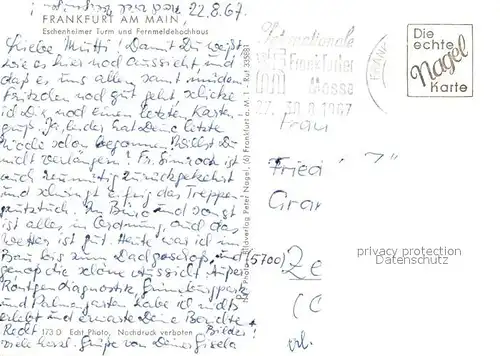 22.8.67.
FRANKFURT AM MAIN
Eschenheimer Turm und Fernmeldehochhaus
Liebe Mutti! Damit Du weißt
wie es hier noch aussieht und
daß es uns allen samt müdem
Fritzchen noch gut geht, schicke
ich Dir noch einen letzten Karten-
gruß. Ja, leider hat Deine letzte
Woche schon begonnen. Willst Du
nicht verlängern? Fr. Simrock ist
auch zurückgekehrt
und schwingt eifrig das Treppen-
putztuch. Im Büro und sonst
ist alles in Ordnung, und das
Wetter ist gut. Heute war ich im
Bau bis zum Dachgeschoß und
genoß die schöne Aussicht. Außer
Röntgendiagnostik, Grüneburgpark
und Palmengarten habe ich nichts
erlebt und erwarte Deine Berichte
Recht
173 D Echt Photo, Nachdruck verboten
viele herzl. Grüße von Deiner Gisela
Bilder:
Peter Nagel, (6) Frankfurt a. M. 1 - Ruf 335881
Internationale
Frankfurter
Messe
27.-30.8.1967
Die
echte
Nagel
Karte
Frau
Fried
(5700)
privacy protection
Datenschutz